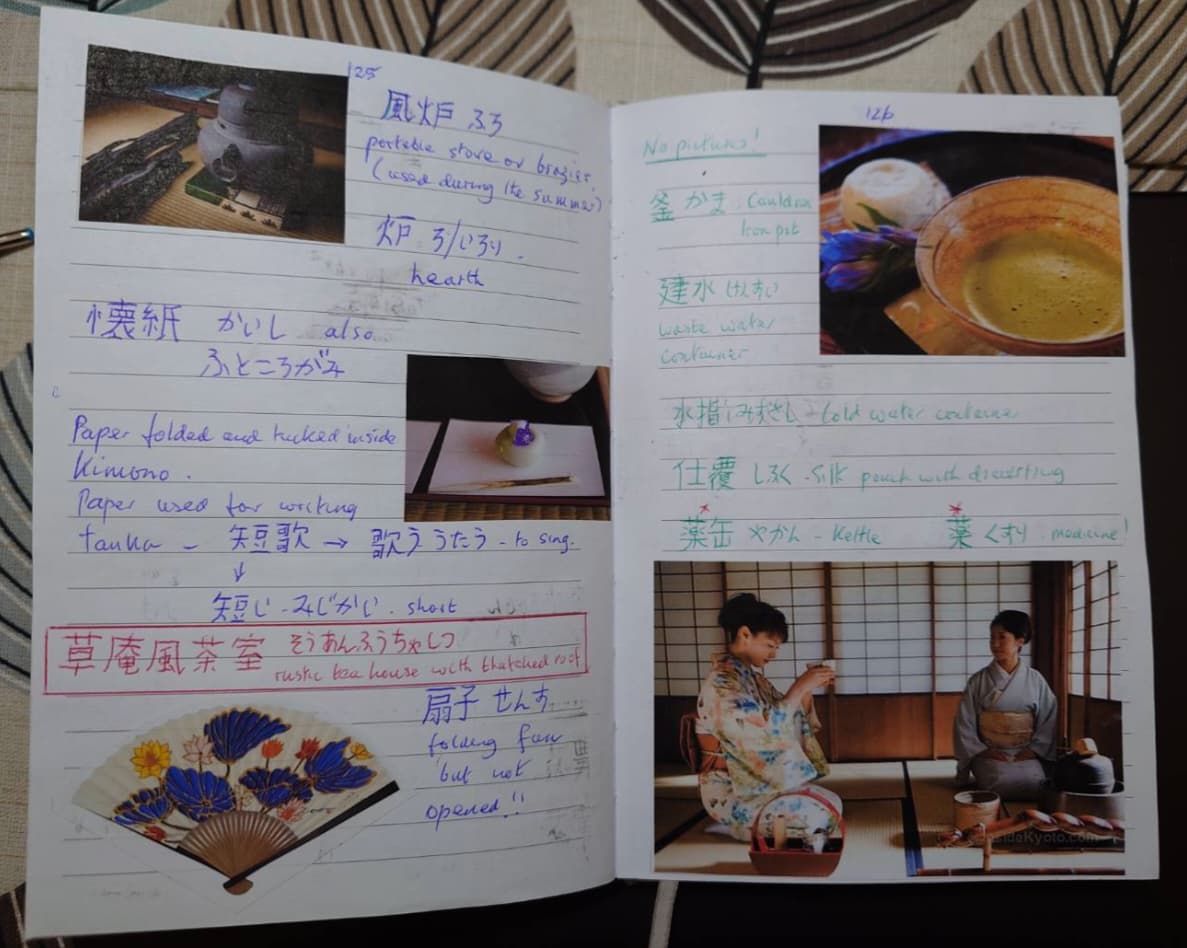 125
風炉 ふろ
portable stove or brazier.
(used during the summer)
炉 ろ/いろり.
hearth
懐紙 かいし also
ふところがみ
Paper folded and tucked inside
Kimono.
Paper used for writing
tanka - 短歌 → 歌う うたう - to sing.
↓
短じ - みじかい. short
草庵風茶室 そうあんふうちゃしつ
rustic tea house with thatched roof
扇子 せんす
folding fan
but not
opened!!
126
No pictures!
釜 かま Cauldron
Iron pot
建水 けんすい
waste water
container
水指 みずさし - Cold water container
仕覆 しふく - Silk pouch with drawstring
薬缶 やかん - Kettle
薬 くすり. medicine!